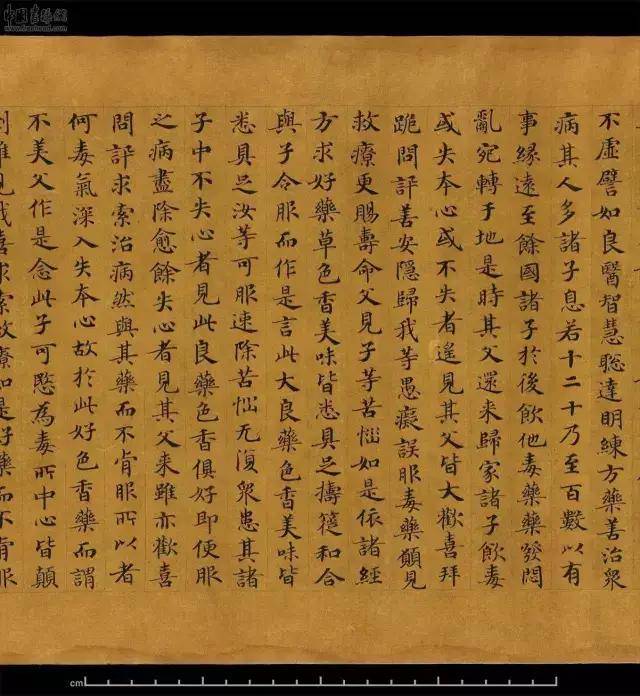 中國書法網
不虛譬如良醫智慧聰達明練方藥善治眾
病其人多諸子息若十二十乃至百數以有
事緣遠至餘國諸子於後飲他毒藥藥發悶
亂宛轉于地是時其父還來歸家諸子飲毒
或失本心或不失者遙見其父皆大歡喜拜
跪問訊善安隱歸我等愚癡誤服毒藥願見
救療更賜壽命父見子等苦惱如是依諸經
方求好藥草色香美味皆悉具足擣簁和合
與子令服而作是言此大良藥色香美味皆
悉具足汝等可服速除苦惱无復眾患其諸
子中不失心者見此良藥色香俱好即便服
之病盡除愈餘失心者見其父來雖亦歡喜
問訊求索治病然與其藥而不肯服所以者
何毒氣深入失本心故於此好色香藥而謂
不美父作是念此子可愍為毒所中心皆顛
倒雖見我喜求索救療如是好藥而不肯服
cm